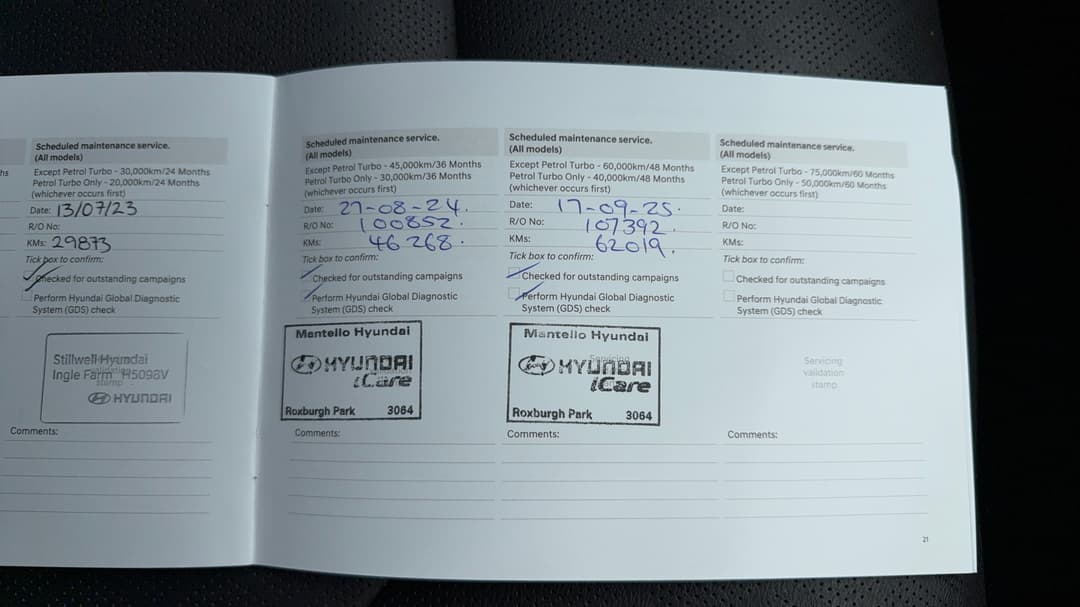 hs
Scheduled maintenance service.
(All models)
Except Petrol Turbo - 30,000km/24 Months
Petrol Turbo Only - 20,000km/24 Months
(whichever occurs first)
Date: 13/07/23
R/O No:
KMs: 29873
Tick box to confirm:
Checked for outstanding campaigns
Perform Hyundai Global Diagnostic
System (GDS) check
Stillwell Hyundai
Ingle Farm H5098V
stamp
HYUNDAI
Comments:
Scheduled maintenance service.
(All models)
Except Petrol Turbo - 45,000km/36 Months
Petrol Turbo Only - 30,000km/36 Months
(whichever occurs first)
Date: 27-08-24.
R/O No: 100852.
KMs: 46268.
Tick box to confirm:
Checked for outstanding campaigns
Perform Hyundai Global Diagnostic
System (GDS) check
Mantello Hyundai
HYUNDAI
iCare
Roxburgh Park 3064
Comments:
Scheduled maintenance service.
(All models)
Except Petrol Turbo - 60,000km/48 Months
Petrol Turbo Only - 40,000km/48 Months
(whichever occurs first)
Date: 17-09-25.
R/O No: 107392.
KMs: 62019.
Tick box to confirm:
Checked for outstanding campaigns
Perform Hyundai Global Diagnostic
System (GDS) check
Mantello Hyundai
Servicing
HYUNDAI
iCare
Roxburgh Park 3064
Comments:
Scheduled maintenance service.
(All models)
Except Petrol Turbo - 75,000km/60 Months
Petrol Turbo Only - 50,000km/60 Months
(whichever occurs first)
Date:
R/O No:
KMs:
Tick box to confirm:
Checked for outstanding campaigns
Perform Hyundai Global Diagnostic
System (GDS) check
Servicing
validation
stamp
Comments:
21